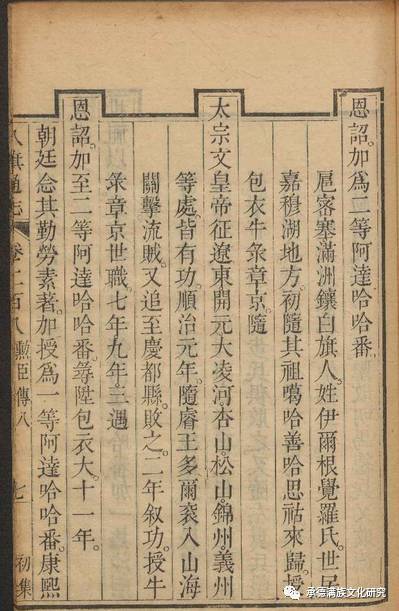 恩詔。加爲二等阿達哈哈番
扈密塞滿洲鑲白旗人。姓伊爾根覺羅氏。世居
嘉穆湖地方。初隨其祖噶哈善哈思祜來歸。授
包衣牛彔章京。隨
太宗文皇帝征遼東開元大凌河杏山。松山。錦州。義州
等處。皆有功。順治元年。隨睿王多爾袞入山海
關擊流賊。又追至慶都縣。敗之。二年敘功。授牛
彔章京世職。七年九年三遇
恩詔。加至二等阿達哈哈番。尋陞包衣大。十一年。
朝廷念其勤勞素著。加授爲一等阿達哈哈番。康熙
八旗通志 卷二百八 勲臣傳八 七 初集
承德满族文化研究